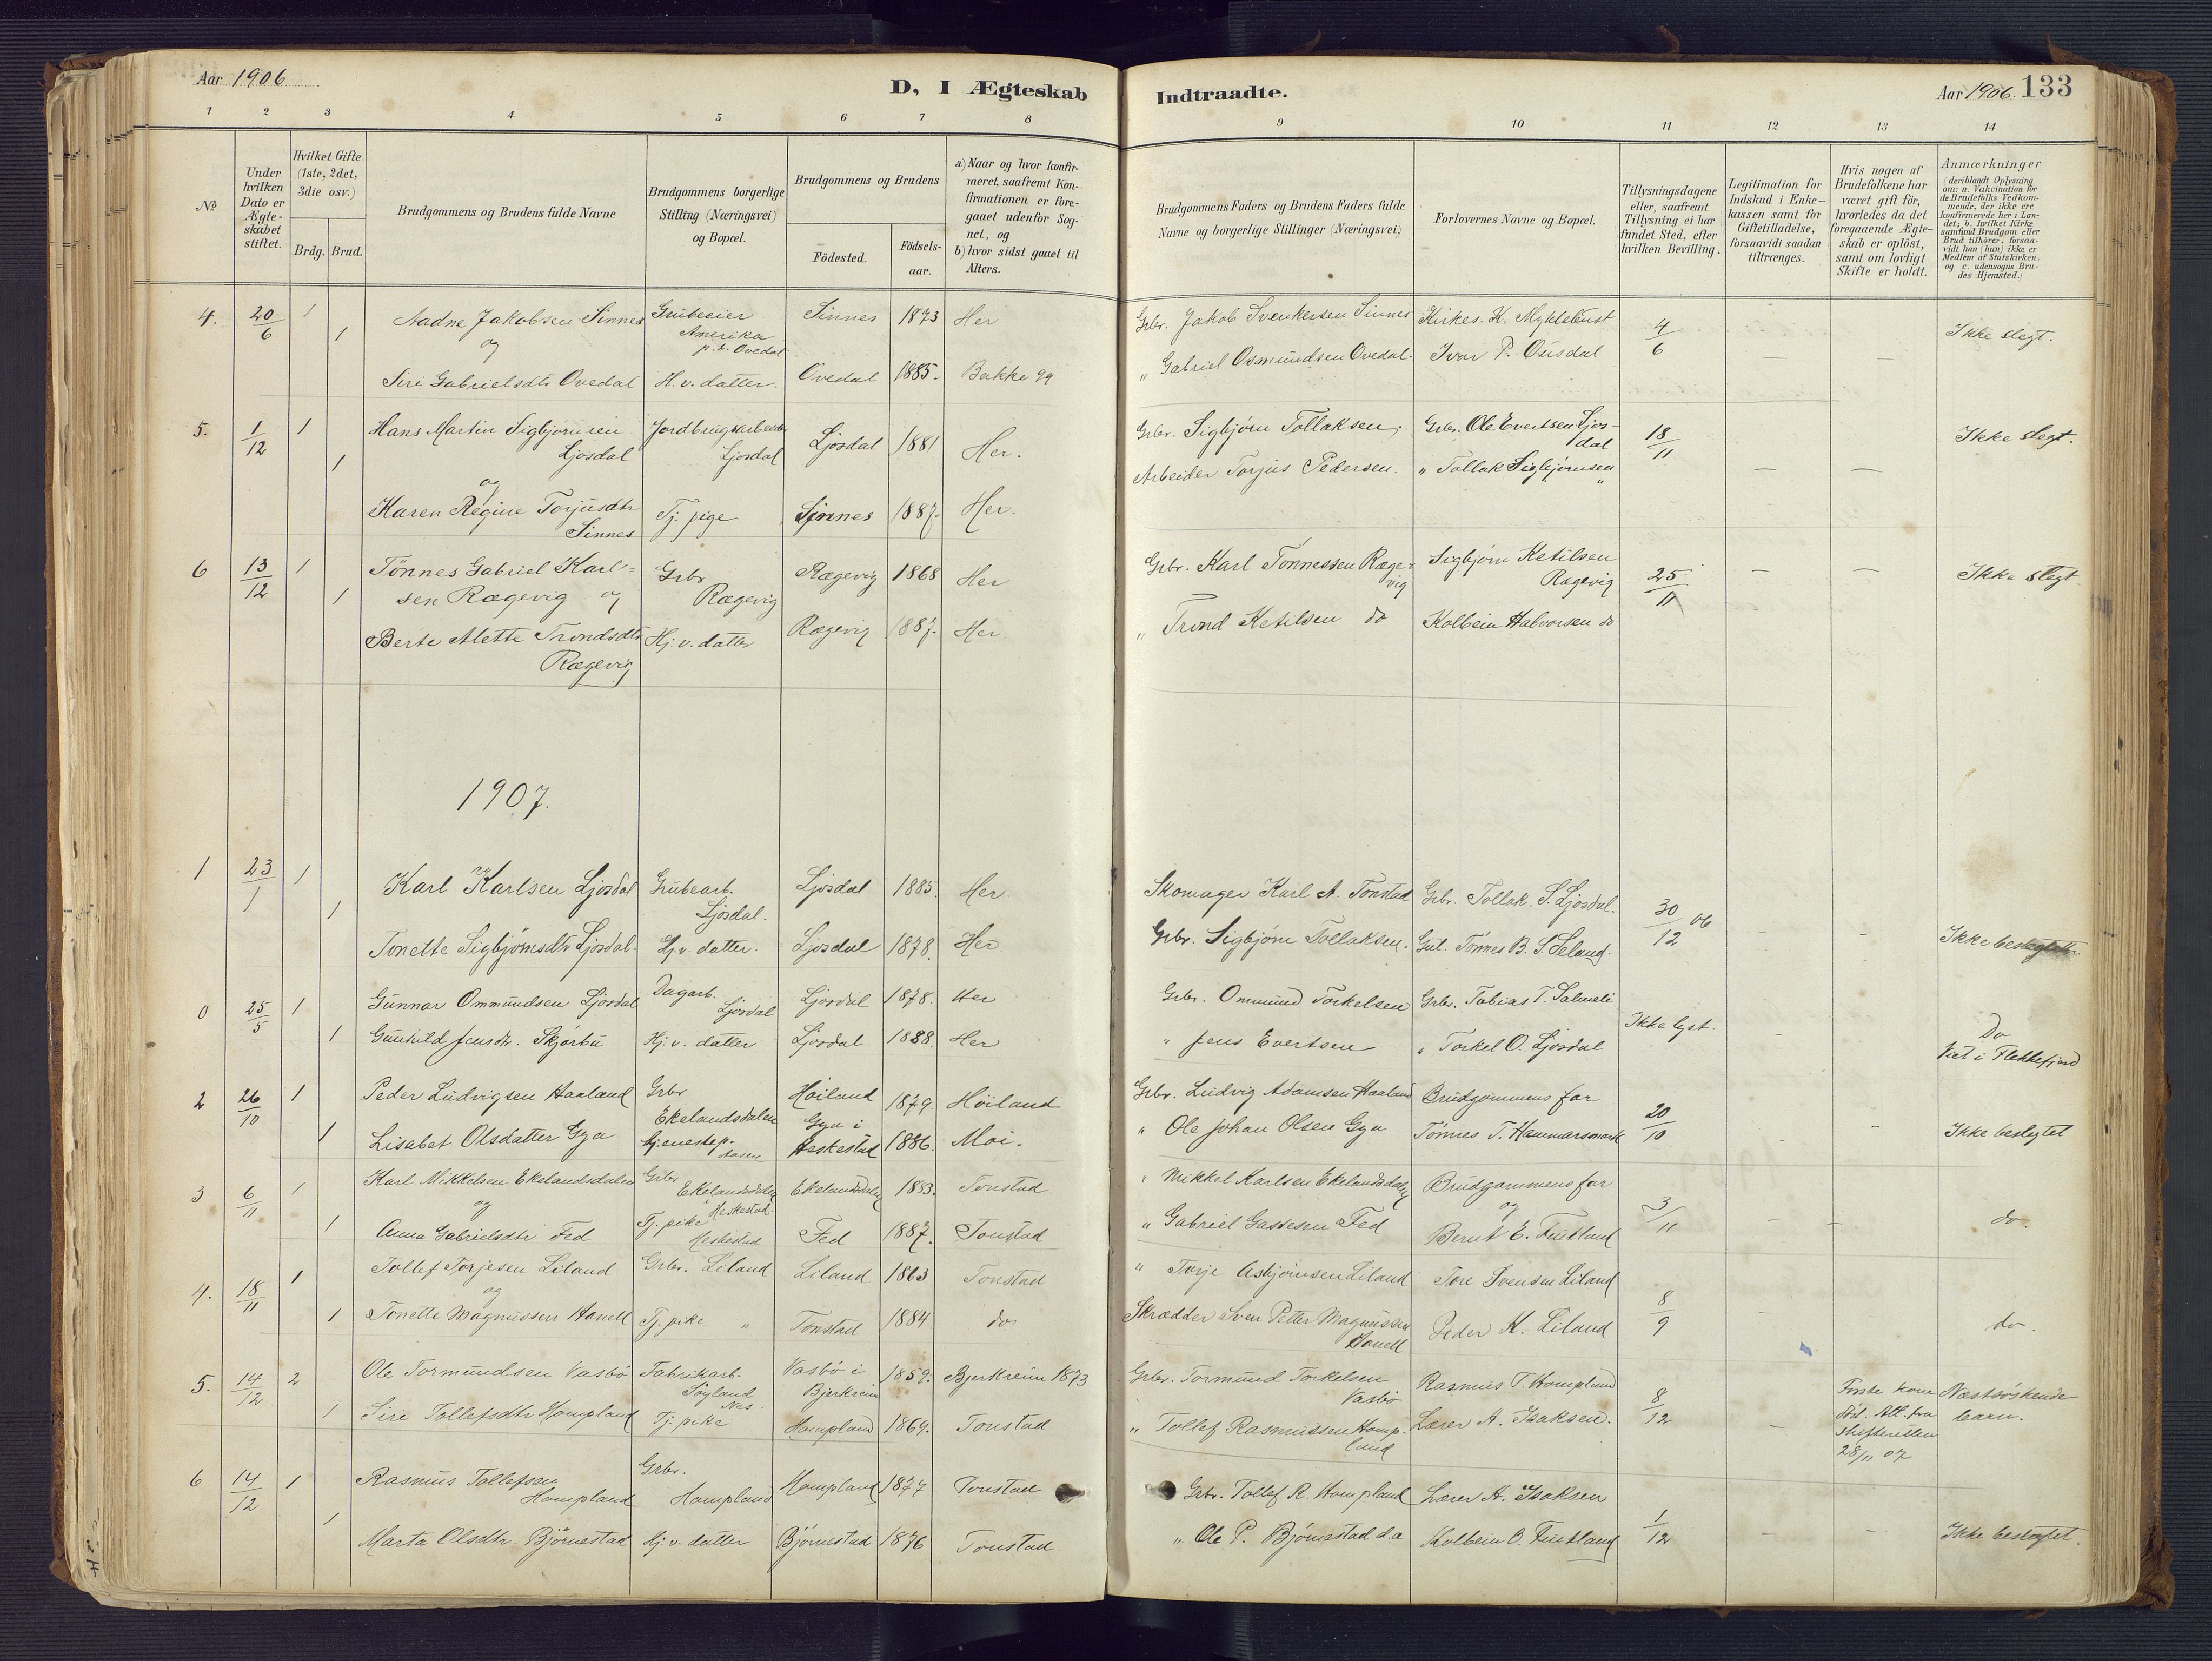 Aar 1906
D, I Ægteskab
Indtraadte.
Aar 1906. 133
1 2 3 4 5 6 7 8 9 10 11 12 13 14
No
Under hvilken Dato er Ægteskabet stiftet.
Hvilket Gifte (1ste, 2det, 3die osv.)
Brdg. Brud.
Brudgommens og Brudens fulde Navne
Brudgommens borgerlige Stilling (Næringsvei) og Bopæl.
Brudgommens og Brudens
Födested.
Födselsaar.
a) Naar og hvor konfirmeret, saafremt Konfirmationen er foregaaet udenfor Sognet, og
b) hvor sidst gaaet til Alters.
Brudgommens Faders og Brudens Faders fulde Navne og borgerlige Stillinger (Næringsvei)
Forlovernes Navne og Bopæl.
Tillysningsdagene eller, saafremt Tillysning ei har fundet Sted, efter hvilken Bevilling.
Legitimation for Indskud i Enkekassen samt for Giftetilladelse, forsaavidt saadan tiltrænges.
Hvis nogen af Brudefolkene har været gift för, hvorledes da det foregaaende Ægteskab er oplöst, samt om lovligt Skifte er holdt.
Anmærkninger
(deriblandt Oplysning om: a. Vakcination for de Brudefolks Vedkommende, der ikke ere konfirmerede her i Landet; b. hvilket Kirkesamfund Brudgom eller Brud tilhörer, forsaavidt han (hun) ikke er Medlem af Statskirken, og c. udensogns Brudes Hjemsted.)
4. 20/6 1 Aadne Jakobsen Sinnes Grubeeier Amerika p.t. Ovedal Sinnes 1873 Her Grbr. Jakob Svenkersen Sinnes Kirkes. K. Myklebust 4/6 Ikke slegt.
og
1 Siri Gabrielsdtr Ovedal H.v. datter. Ovedal 1885. Bakke 99 " Gabriel Osmundsen Ovedal. Ivar P. Ousdal
5. 1/12 1 Hans Martin Sigbjørnsen Ljosdal Jordbrugsarbeider Ljosdal Ljosdal 1881 Her. Grbr. Sigbjørn Tollaksen, Grbr. Ole Evertsen Ljosdal 18/11 — — Ikke slegt.
og
1 Karen Regine Torjusdtr Sinnes Tj. pige Sinnes 1887. Her. Arbeider Torjus Pedersen. " Tollak Sigbjørnsen "
6 13/12 1 Tönnes Gabriel Karlsen Rægevig og Grbr Rægevig Rægevig 1868 Her Grbr. Karl Tönnessen Rægevig Sigbjørn Ketilsen Rægevig 25/11 — — Ikke slegt.
1 Berte Alette Trondsdtr Rægevig Hj. v. datter Rægevig 1887. Her " Trond Ketilsen do Kolbein Halvorsen do
1907.
1 23/1 1 Karl Karlsen Ljosdal Grubearb. Ljosdal. Ljosdal 1885. Her. Skomager Karl A. Tonstad Grbr. Tollak. S. Ljosdal. 30/12 06
og
1 Tonette Sigbjörnsdtr Ljosdal. Hj. v. datter. Ljosdal 1878. Her Grbr. Sigbjörn Tollaksen. Gul. Tönnes B. S. Seland. Ikke beslegtet.
0 25/5 1 Gunnar Ommundsen Ljosdal Dagarb. Ljosdal Ljosdal 1878. Her Grbr. Ommund Torkelsen Grbr. Tobias T. Salmeli Ikke lyst. Do
1 Gunhild Jensdtr. Skjørbu Hj. v. datter Ljosdal 1888. Her " Jens Evertsen " Torkel O. Ljosdal Viet i Flekkefjord
2 26/10 1 Peder Ludvigsen Haaland Grbr Ekelandsdalen Höiland 1879 Höiland Grbr. Ludvig Adamsen Haaland Brudgommens far 20/10
1 Lisabet Olsdatter Gya tjenestep. Gya i Heskestad 1886. Moi. " Ole Johan Olsen Gya Tönnes T. Hammersmark Ikke beslegtet
3 6/11 1 Karl Mikkelsen Ekelandsdalen Grbr Ekelandsdalen Heskestad. Ekelandsdalen 1883. Tonstad " Mikkel Karlsen Ekelandsdalen Brudgommens far 3/11 — — do.
og
1 Anna Gabrielsdtr Fed Tj. pike Heskestad Fed 1887. Tonstad " Gabriel Gassesen Fed og Bernt E. Fintland
4. 18/11 1 Tollef Torjesen Liland Grbr. Liland Liland 1863 Tonstad " Torje Asbjörnsen Liland Tore Svensen Liland 8/9
og
1 Tonette Magnussen Hanell Tj. pike " Tonstad 1884 do Skrædder Sven Petter Magnussen Hanell Peder K. Liland do.
5. 14/12 2 Ole Tormundsen Vasbö Fabrikarb. Söyland Nes Vasbö i Bjerkreim 1859. Bjerkreim 1873 Grbr. Tormund Torkelsen Vasbö Rasmus T. Hompland 8/12 Förste kone död. Att. fra skifteretten 28/11 07 Næstsöskende barn.
1 Siri Tollefsdtr Hompland Tj. pike Hompland 1869. Tonstad " Tollef Rasmussen Hompland Lærer A. Isaksen.
6 14/12 1 Rasmus Tollefsen Hompland Grbr. Hompland Hompland 1877 Tonstad Grbr. Tollef R. Hompland Lærer A. Isaksen 1/12
1 Marta Olsdtr. Björnestad Hj. v. datter Björnestad 1876 Tonstad " Ole P. Björnestad d.a. Kolbein O. Fintland Ikke beslegtet.